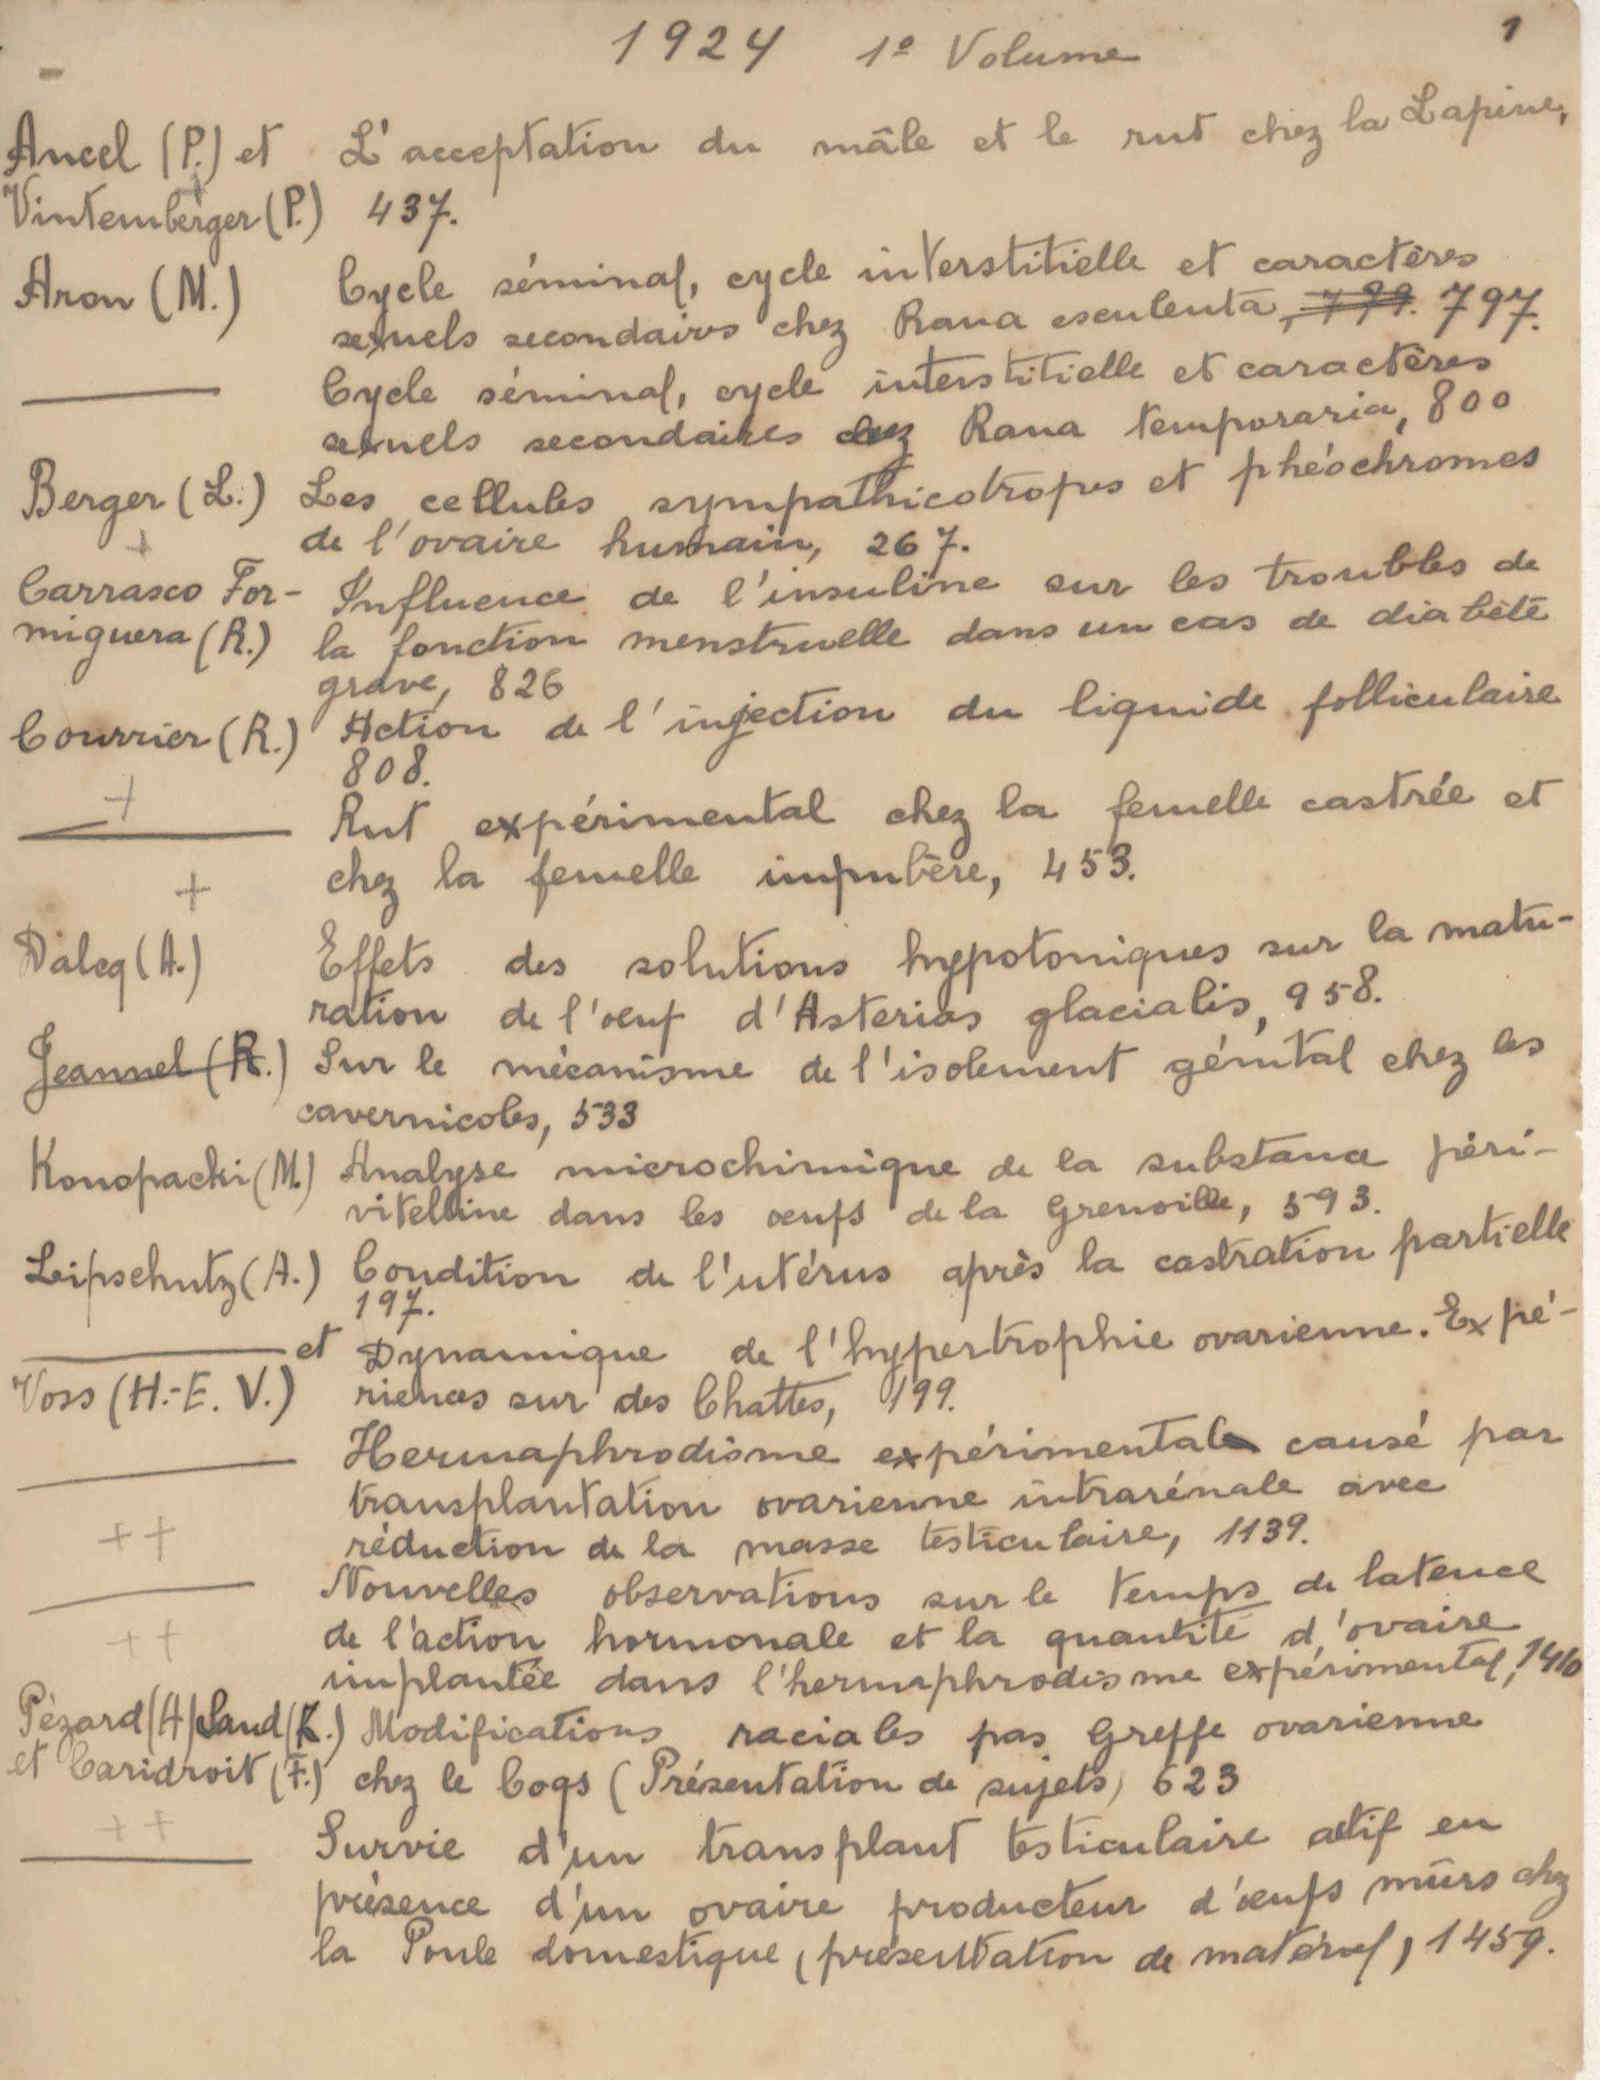 1924 1º Volume 1
Ancel (P.) et L'acceptation du mâle et le rut chez la Lapine,
Vintemberger (P.) 437.
Aron (M.) Cycle séminal, cycle interstitielle et caractères
sexuels secondaires chez Rana esculenta, 799. 797.
Cycle séminal, cycle interstitielle et caractères
sexuels secondaires chez Rana temporaria, 800
Berger (L.) Les cellules sympathicotropes et phéochromes
+ de l'ovaire humain, 267.
Carrasco For- Influence de l'insuline sur les troubles de
miguera (R.) la fonction menstruelle dans un cas de diabète
grave, 826
Courrier (R.) Action de l'injection du liquide folliculaire
808.
+ Rut expérimental chez la femelle castrée et
+ chez la femelle impubère, 453.
Dalcq (A.) Effets des solutions hypotoniques sur la matu-
ration de l'oeuf d'Asterias glacialis, 958.
Jeannel (R.) Sur le mécanisme de l'isolement génital chez les
cavernicoles, 533
Konopacki (M.) Analyse microchimique de la substance péri-
vitelline dans les oeufs de la Grenoille, 593.
Leipschutz (A.) Condition de l'utérus après la castration partielle
197.
et Dynamique de l'hypertrophie ovarienne. Expé-
Voss (H.-E. V.) riences sur des Chattes, 199.
Hermaphrodisme expérimental causé par
transplantation ovarienne intrarénale avec
++ réduction de la masse testiculaire, 1139.
Nouvelles observations sur le temps de latence
++ de l'action hormonale et la quantité d'ovaire
implantée dans l'hermaphrodisme expérimental, 1410
Pézard (A) Sand (K.) Modifications raciales pas Greffe ovarienne
et Caridroit (F.) chez le Coqs (Présentation de sujets) 623
++ Survie d'un transplant testiculaire actif en
présence d'un ovaire producteur d'oeufs mûrs chez
la Poule domestique (présentation de matériel), 1459.